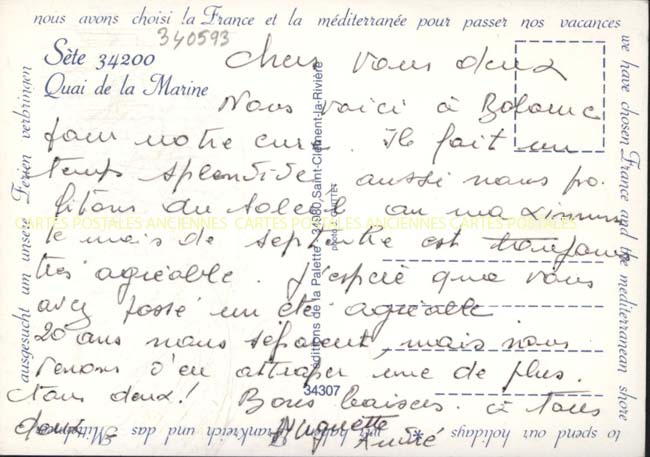 nous avons choisi la France et la méditerranée pour passer nos vacances
we have chosen France and the mediterranean shore
to spend our holidays *
wir haben Frankreich und das Mittelmeer
ausgesucht um unsere Ferien verbringen
340593
Sète 34200
Quai de la Marine
Chers vous deux
Nous voici à Balaruc
pour notre cure. Il fait un
temps splendide aussi nous pro
fitons du soleil au maximum
le mois de septembre est toujours
très agréable. J'espère que vous
avez passé un été agréable
20 ans nous séparent, mais nous
venons d'en attraper une de plus.
tous deux! Bons baisers à tous
deux -
Huguette
André
éditions de la Palette 34980 Saint-Clément-la-Rivière
34307
CARTES POSTALES ANCIENNES CARTES POSTALES ANCIENNES CARTES POSTALES